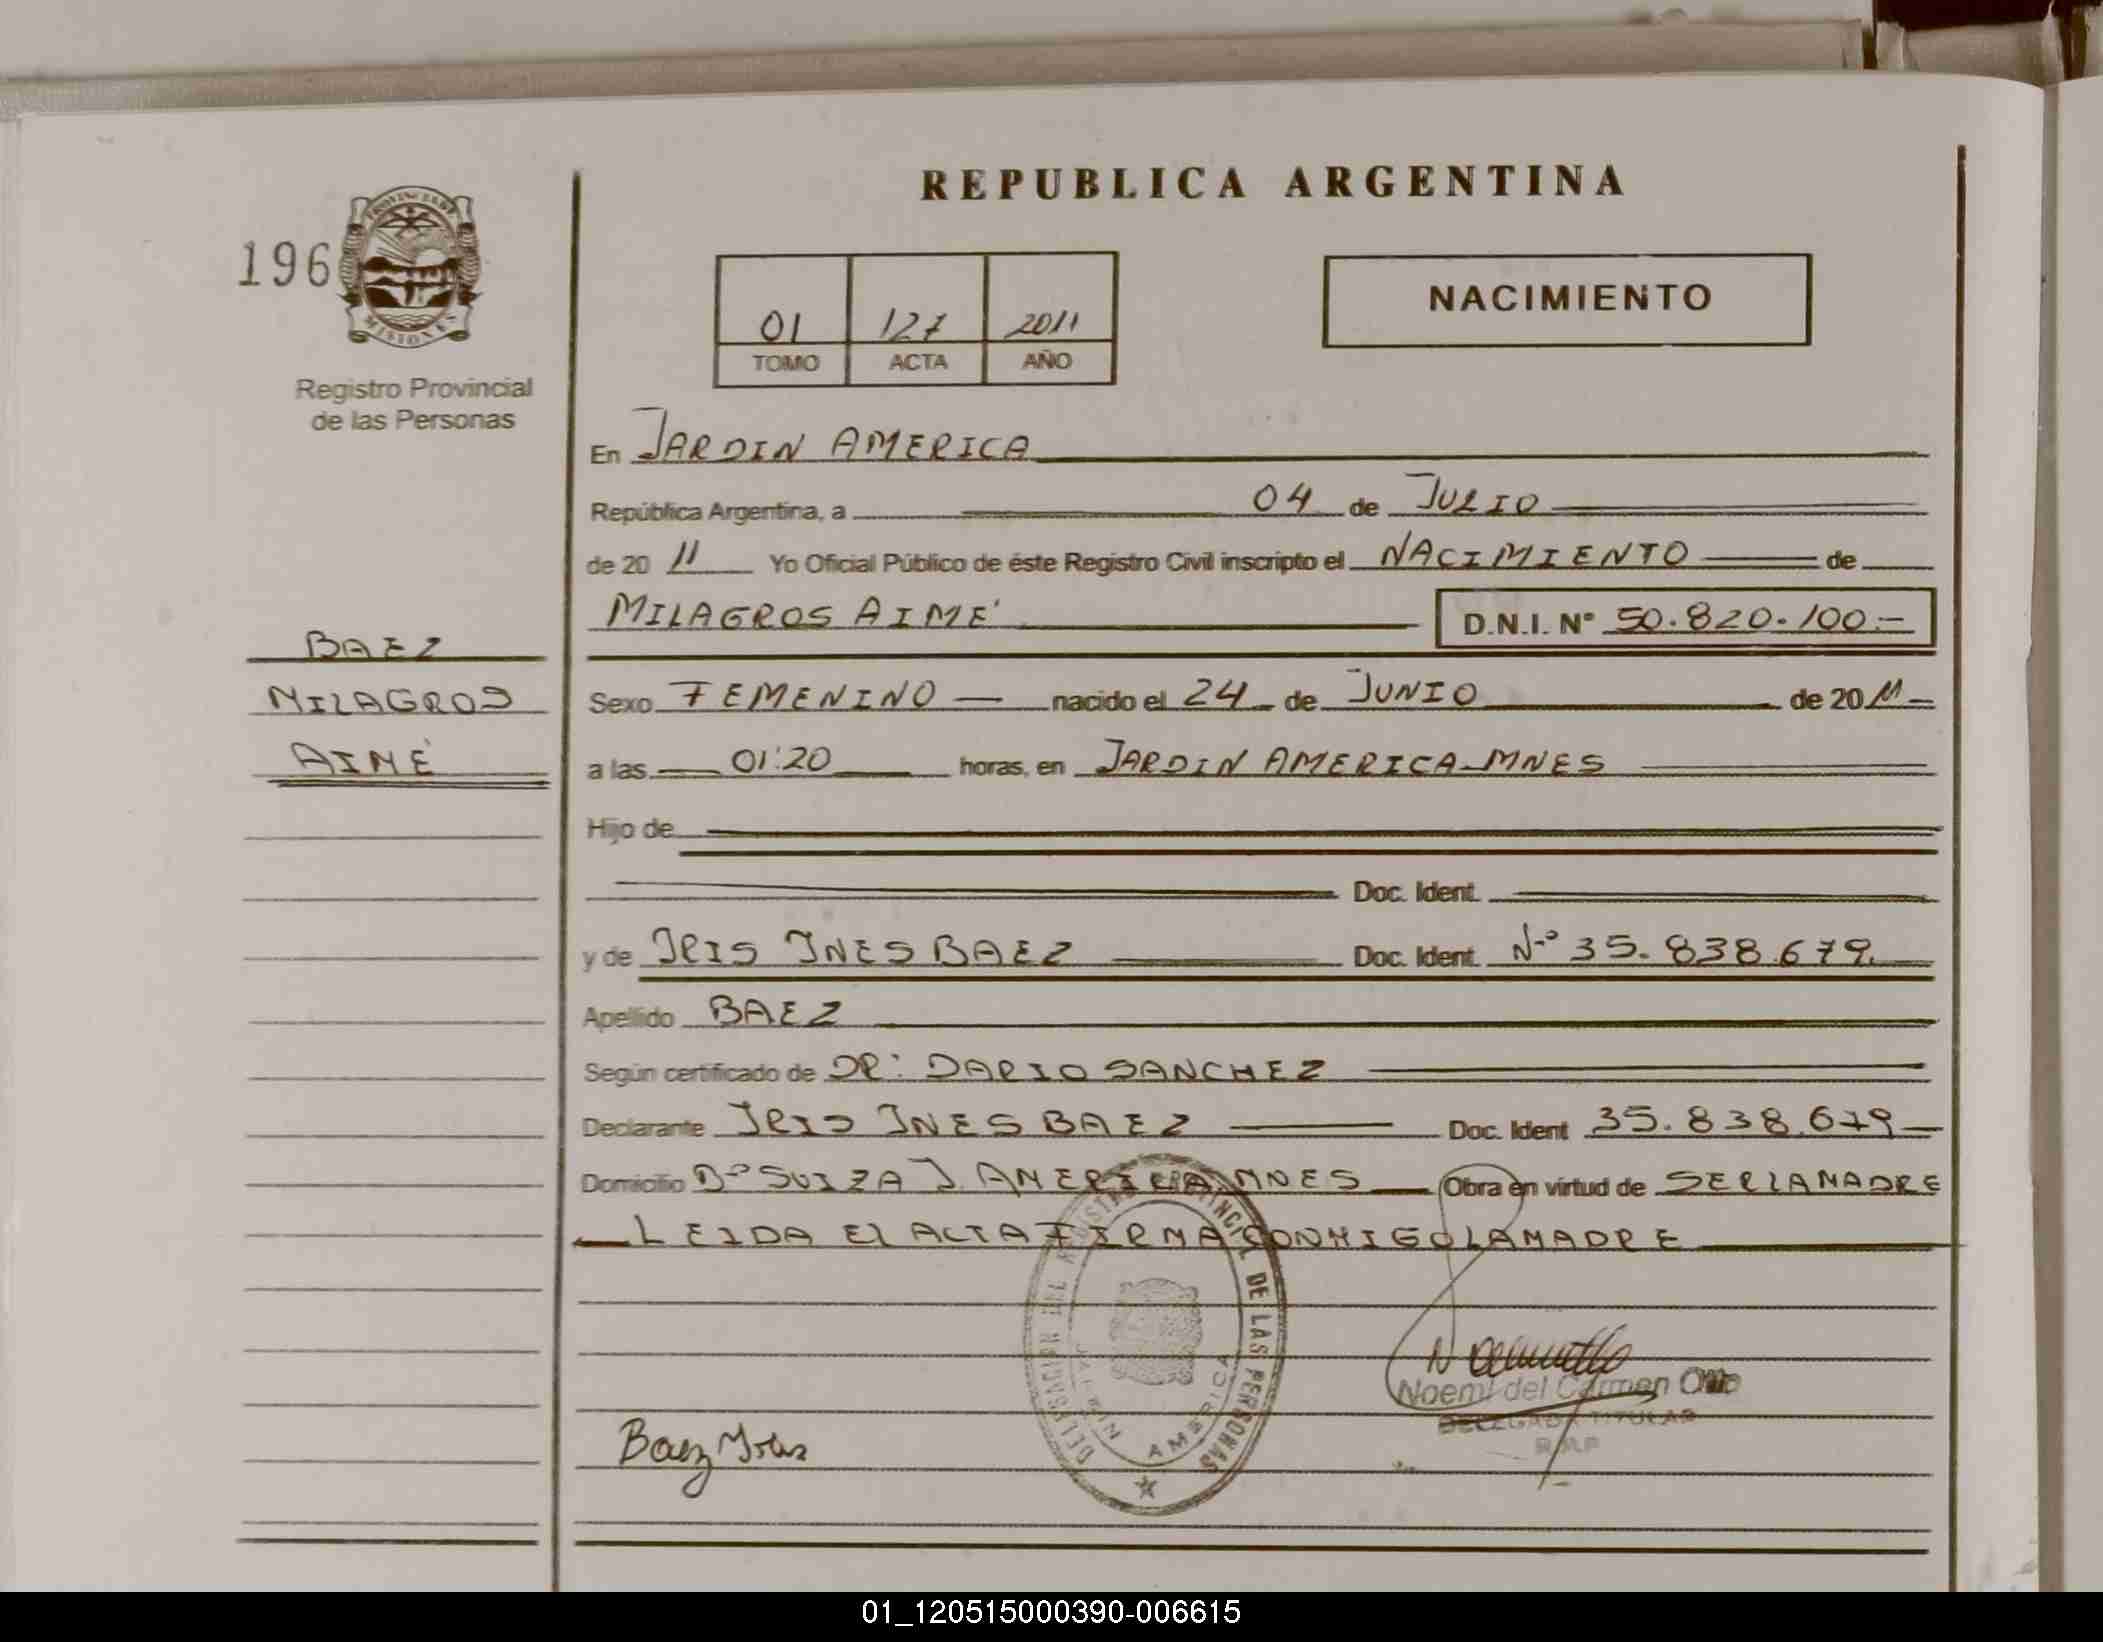 REPUBLICA ARGENTINA
196
PROVINCIA DE
MISIONES
Registro Provincial
de las Personas
01 127 2011
TOMO ACTA AÑO
NACIMIENTO
En JARDIN AMERICA
República Argentina, a 04 de JULIO
de 20 11 Yo Oficial Público de éste Registro Civil inscripto el NACIMIENTO de
MILAGROS AIMÉ D.N.I. Nº 50.820.100.-
BAEZ
MILAGROS
AIMÉ
Sexo FEMENINO nacido el 24 de JUNIO de 20 11
a las 01:20 horas, en JARDIN AMERICA-MNES
Hijo de
Doc. Ident.
y de IRIS INES BAEZ Doc. Ident. Nº 35.838.679.
Apellido BAEZ
Según certificado de DR: DARIO SANCHEZ
Declarante IRIS INES BAEZ Doc. Ident 35.838.679
Domicilio Bº SUIZA J. AMERICA MNES Obra en virtud de SER LA MADRE
LEIDA EL ACTA FIRMA CONMIGO LA MADRE
DELEGACION DEL REGISTRO PROVINCIAL DE LAS PERSONAS
JARDIN AMERICA
Noemi del Carmen
DELEGADA TITULAR
Baez Iris
01_120515000390-006615